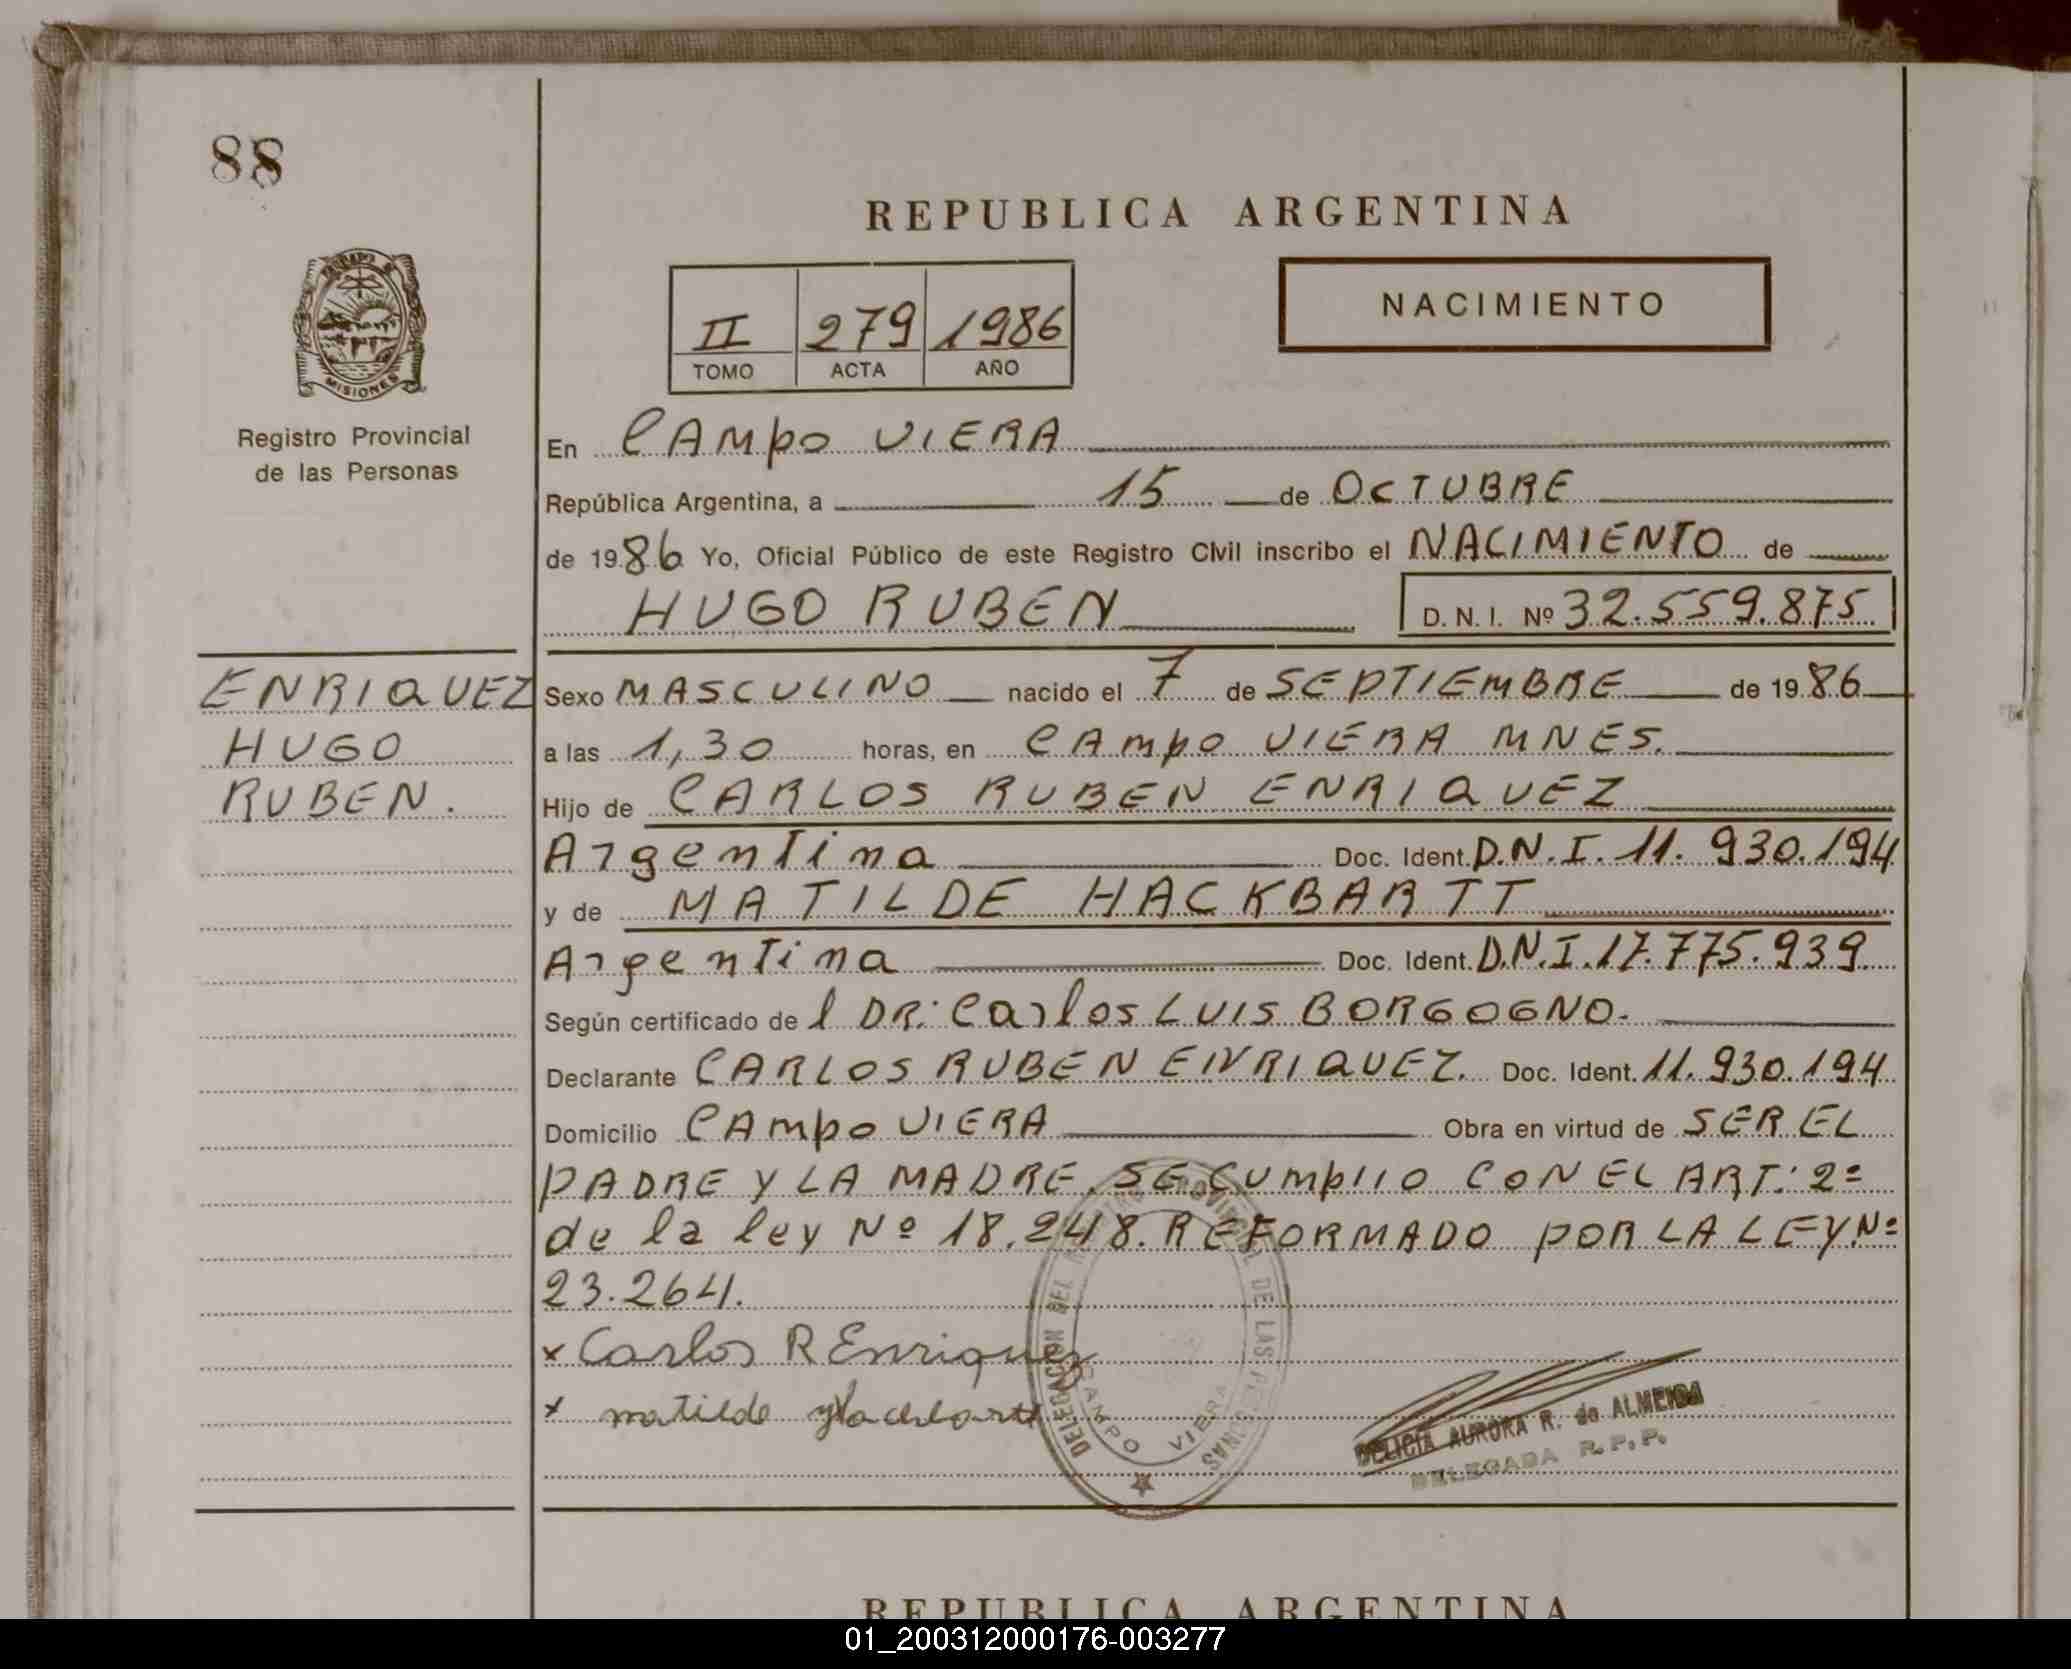 88
REPUBLICA ARGENTINA
II 279 1986
TOMO ACTA AÑO
NACIMIENTO
MISIONES
Registro Provincial
de las Personas
En CAMpo VIERA
República Argentina, a 15 de OCTUBRE
de 1986 Yo, Oficial Público de este Registro Civil inscribo el NACIMIENTO de
HUGO RUBEN D. N. I. Nº 32.559.875
ENRIQUEZ
HUGO
RUBEN.
Sexo MASCULINO nacido el 7 de SEPTIEMBRE de 1986
a las 1,30 horas, en CAMpo VIERA MNES.
Hijo de CARLOS RUBEN ENRIQUEZ
Argentina Doc. Ident. D.N.I. 11.930.194
y de MATILDE HACKBARTT
Argentina Doc. Ident. D.N.I. 17.775.939
Según certificado de l DR: Carlos LUIS BORGOGNO.
Declarante CARLOS RUBEN ENRIQUEZ. Doc. Ident. 11.930.194
Domicilio CAMpo VIERA Obra en virtud de SER EL
PADRE Y LA MADRE. SE CUMpliO CON EL ART: 2º
de la ley Nº 18.248. REFORMADO POR LA LEY Nº
23.264.
x Carlos R Enriquez
x matilde Hackbartt
DELEGACION DEL REGISTRO PROVINCIAL DE LAS PERSONAS
CAMPO VIERA
DELICIA AURORA R. de ALMEIDA
DELEGADA R. P. P.
REPUBLICA ARGENTINA
01_200312000176-003277